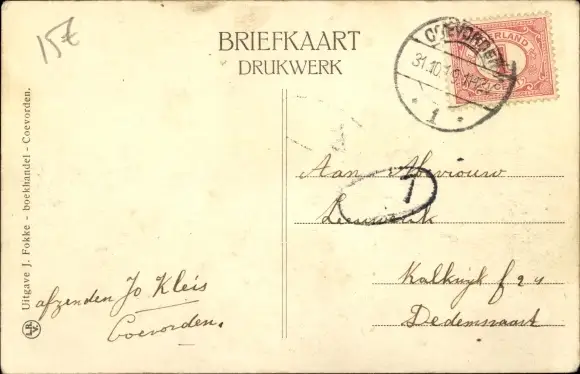 15€
BRIEFKAART
DRUKWERK
COEVORDEN
31.10
1
NEDERLAND
Aan Mevrouw
1
Leeuwerik
Kalkwijk f 24
Dedemsvaart
afzender Jo Kleis
Coevorden.
Uitgave J. Fokke - boekhandel - Coevorden.